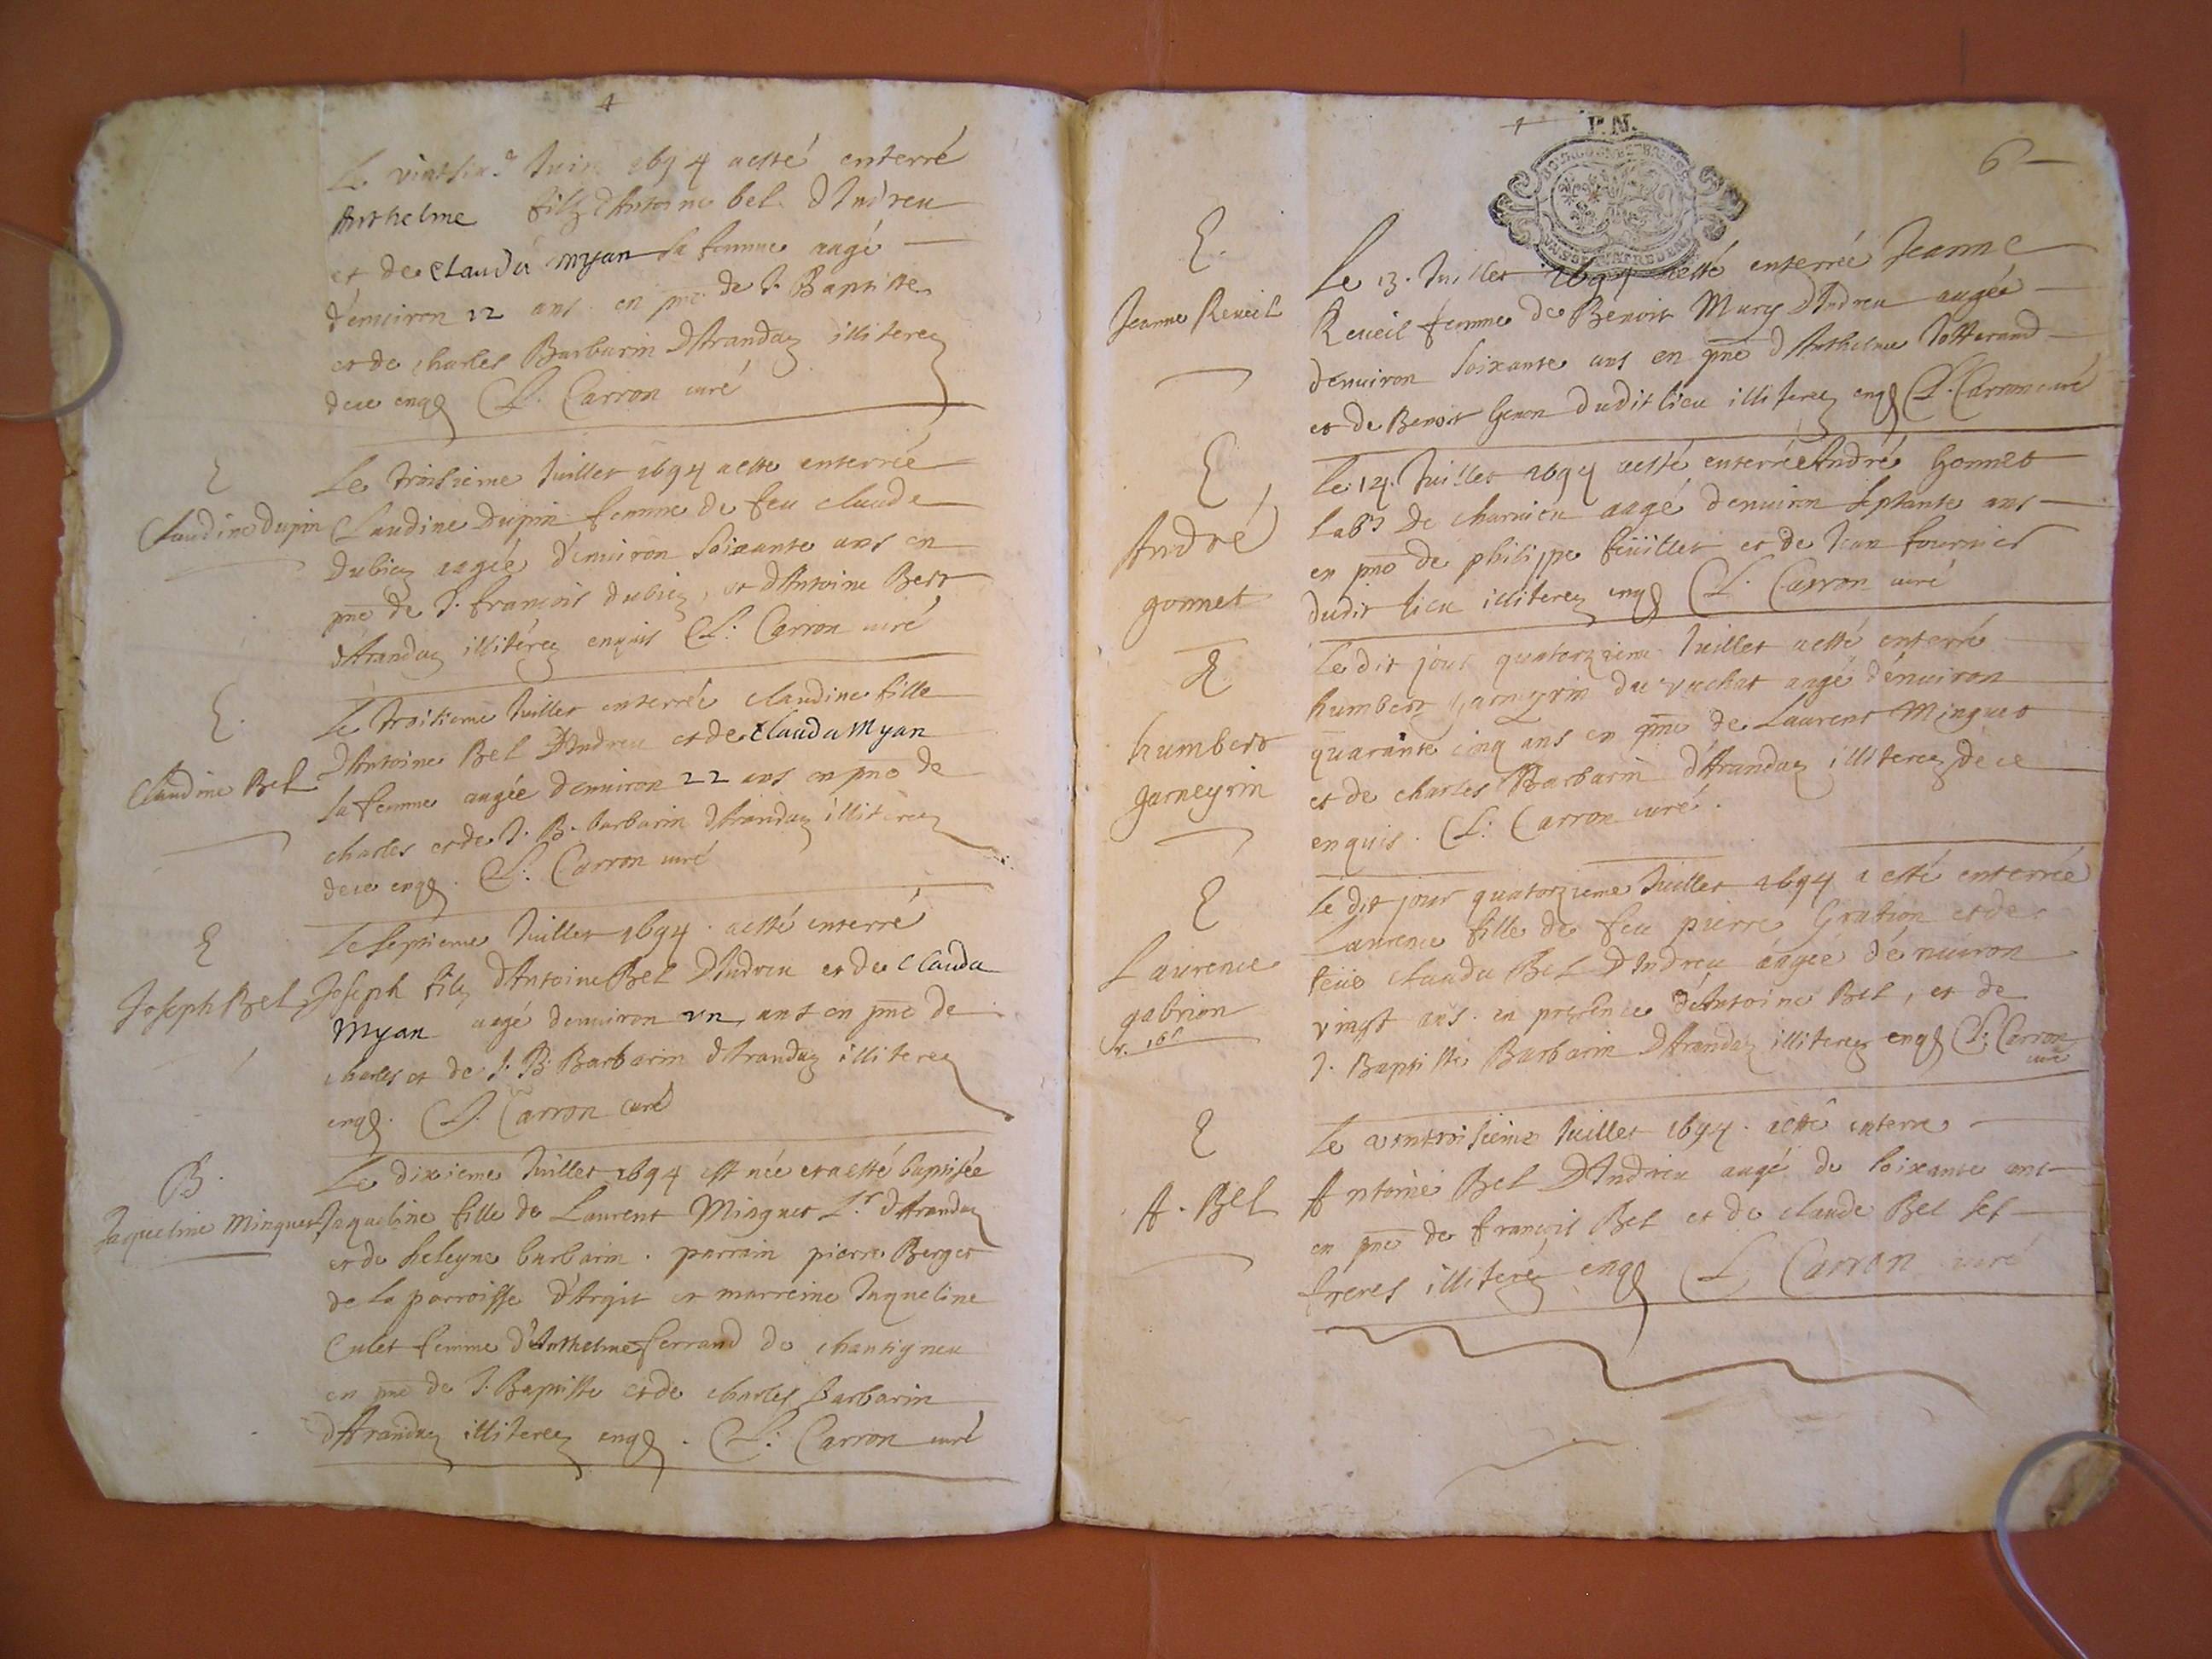 Le vintsix.e Juin 1694 a esté enterré
Anthelme filz d'Antoine bel d'Andreu
et de Clauda Myan sa femme aagé
d'enuiron 12 ans en pnce de J. Baptiste
et de charles Barbarin d'Aranday illiterez
de ce enqs L. Carron curé
E
Claudine Dupin
Le troisieme Juillet 1694 a esté enterrée
Claudine Dupin femme de feu claude
Dubiez aagée d'enuiron soixante ans en
pnce de J. françois dubiez, et d'Antoine Bert
d'Aranday illiterez enquis L. Carron curé
E.
Claudine Bel
Le troisieme Juillet enterrée claudine fille
d'Antoine Bel d'Andreu et de Clauda Myan
sa femme aagée d'enuiron 22 ans en pnce de
charles et de J. B. barbarin d'Aranday illiterez
de ce enqs. L. Carron curé
E
Joseph Bel
Le septieme Juillet 1694. a esté enterré
Joseph filz d'Antoine Bel d'Andreu et de Clauda
Myan aagé d'enuiron un ans en pnce de
charles et de J. B. Barbarin d'Aranday illiterez
enqs. L. Carron curé
B.
Jaqueline Minguet
Le dixieme Juillet 1694 est née et a esté baptisée
Jaqueline fille de Laurent Minguet L.r d'Aranday
et de heleyne barbarin. parrain pierre Berget
de la parroisse d'Argit et marreine Jaqueline
Culet femme d'Anthelme ferrand de chantigneu
en pnce de J. Baptiste et de charles Barbarin
d'Aranday illiterez enqs. L. Carron curé
P.N.
6
E.
Jeanne Reueil
Le 13. Juillet 1694 a esté enterrée Jeanne
Reueil femme de Benoit Mury d'Andreu aagée
d'enuiron soixante ans en pnce d'Anthelme Jotterand
et de Benoit Genon dudit lieu illiterez enqs L. Carron curé
E
André
gonnet
Le 14. Juillet 1694 a esté enterrée André Gonnet
lab.r de charuieu aagé d'enuiron septante ans
en pnce de philippe feüillet et de Jean fournier
dudit lieu illiterez enqs L. Carron curé
E
humbert
garneyrin
Le dit jour quatorzieme Juillet a esté enterré
humbert garneyrin du vachat aagé d'enuiron
quarante cinq ans en pnce de Laurent Minguet
et de charles Barbarin d'Aranday illiterez de ce
enquis. L. Carron curé.
E
Laurence
gabrion
Le dit jour quatorzieme Juillet 1694 a esté enterrée
Laurence fille de feu pierre et de
feüe clauda Bel d'Andreu aagée d'enuiron
vingt ans. en presence d'Antoine Bel, et de
J. Baptiste Barbarin d'Aranday illiterez enqs L. Carron
curé
E
A. Bel
Le vintroisieme Juillet 1694. a esté enterre
Antoine Bel d'Andreu aagé de soixante ans
en pnce de françois Bel et de claude Bel ses
freres illiterez enqs L. Carron curé